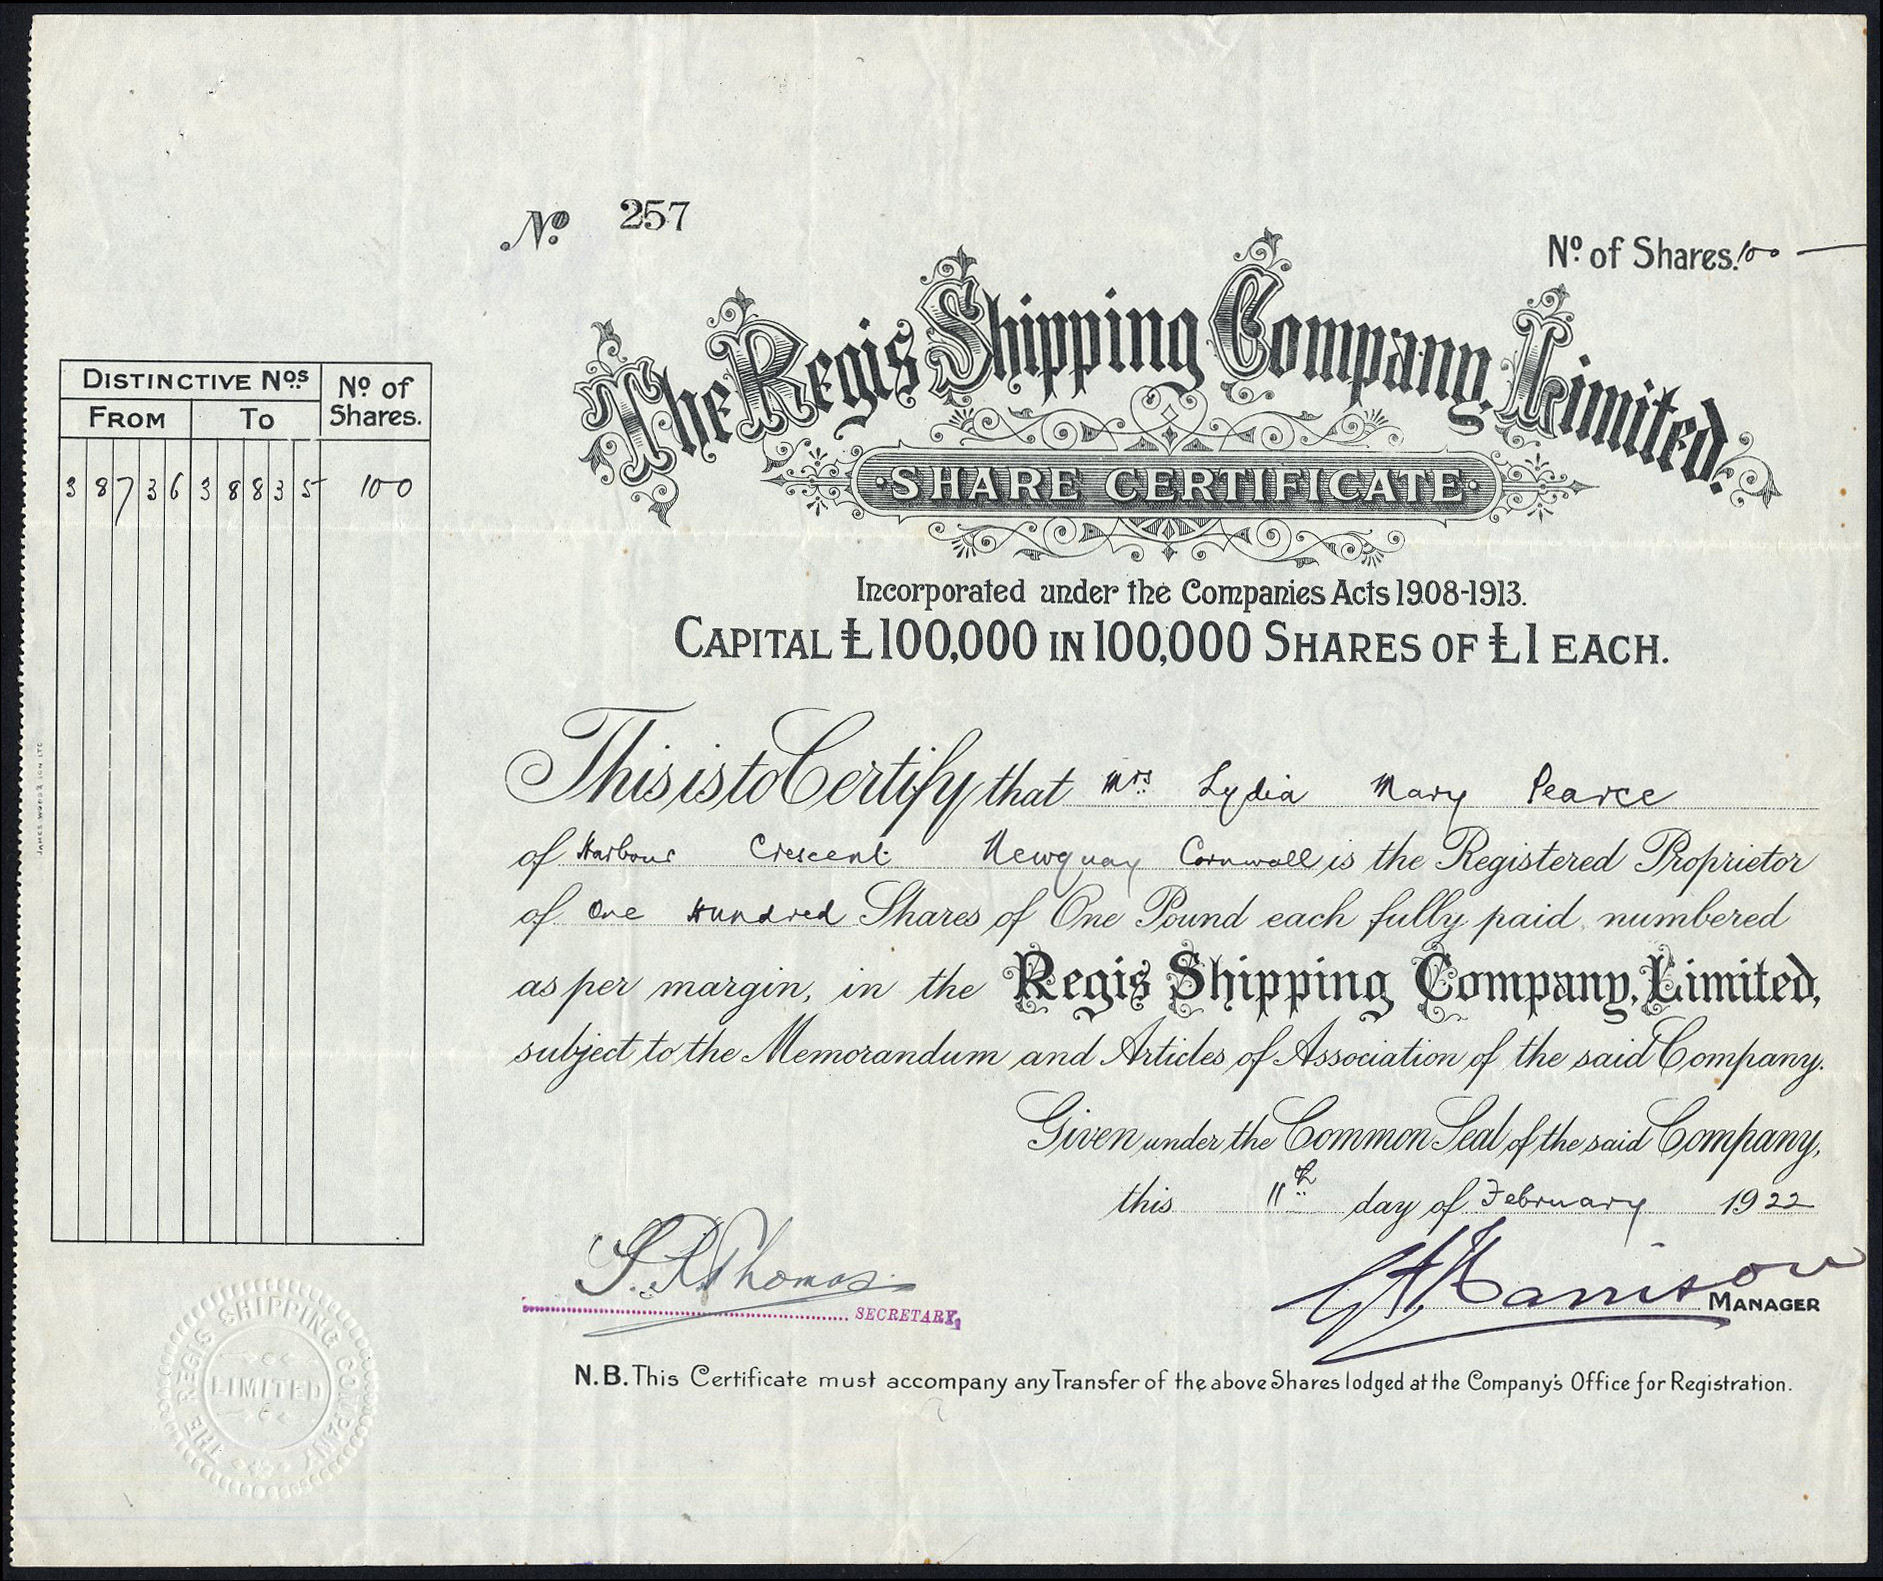 No. 257
No. of Shares. 100 —
The Regis Shipping Company, Limited.
SHARE CERTIFICATE
Incorporated under the Companies Acts 1908-1913.
CAPITAL £100,000 IN 100,000 SHARES OF £1 EACH.
DISTINCTIVE Nos. No. of Shares.
FROM To
38736 38835 100
This is to Certify that Mrs. Lydia Mary Pearce
of Harbour Crescent Newquay Cornwall is the Registered Proprietor
of One Hundred Shares of One Pound each fully paid, numbered
as per margin, in the Regis Shipping Company, Limited,
subject to the Memorandum and Articles of Association of the said Company.
Given under the Common Seal of the said Company,
this 11th day of February 1922
S. R. Thomas
SECRETARY.
Harrison
MANAGER
N.B. This Certificate must accompany any Transfer of the above Shares lodged at the Company's Office for Registration.
THE REGIS SHIPPING COMPANY
LIMITED